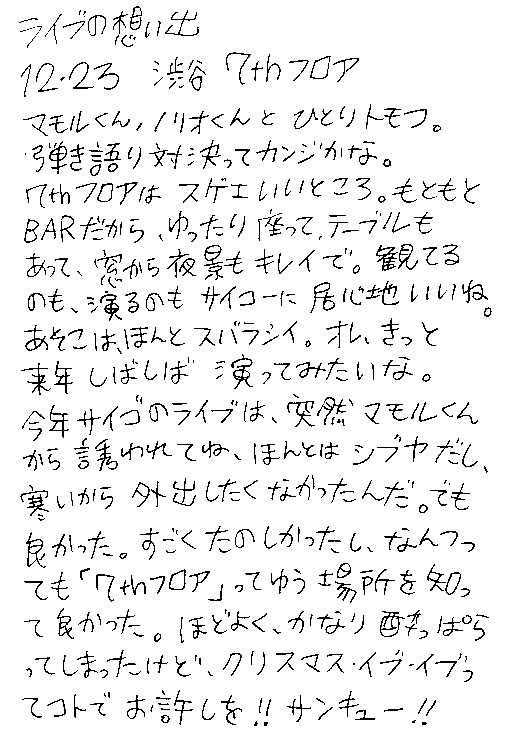 ライブの想い出
12.23 渋谷 7thフロア
マモルくん,ノリオくんと ひとりトモフ。
弾き語り対決ってカンジかな。
7thフロアは スゲエいいところ。もともと
BARだから、ゆったり座って,テーブルも
あって、窓から夜景もキレイで。観てる
のも、演るのも サイコーに 居心地いいね。
あそこは、ほんとスバラシイ。オレ、きっと
来年 しばしば 演ってみたいな。
今年サイゴのライブは、突然マモルくん
から誘われてね、ほんとは シブヤだし、
寒いから 外出したくなかったんだ。でも
良かった。すごくたのしかったし、なんつっ
ても「7thフロア」ってゆう場所を知っ
て良かった。ほどよく、かなり酔っぱら
ってしまったけど、クリスマス・イブ・イブっ
てコトで お許しを!! サンキュー!!